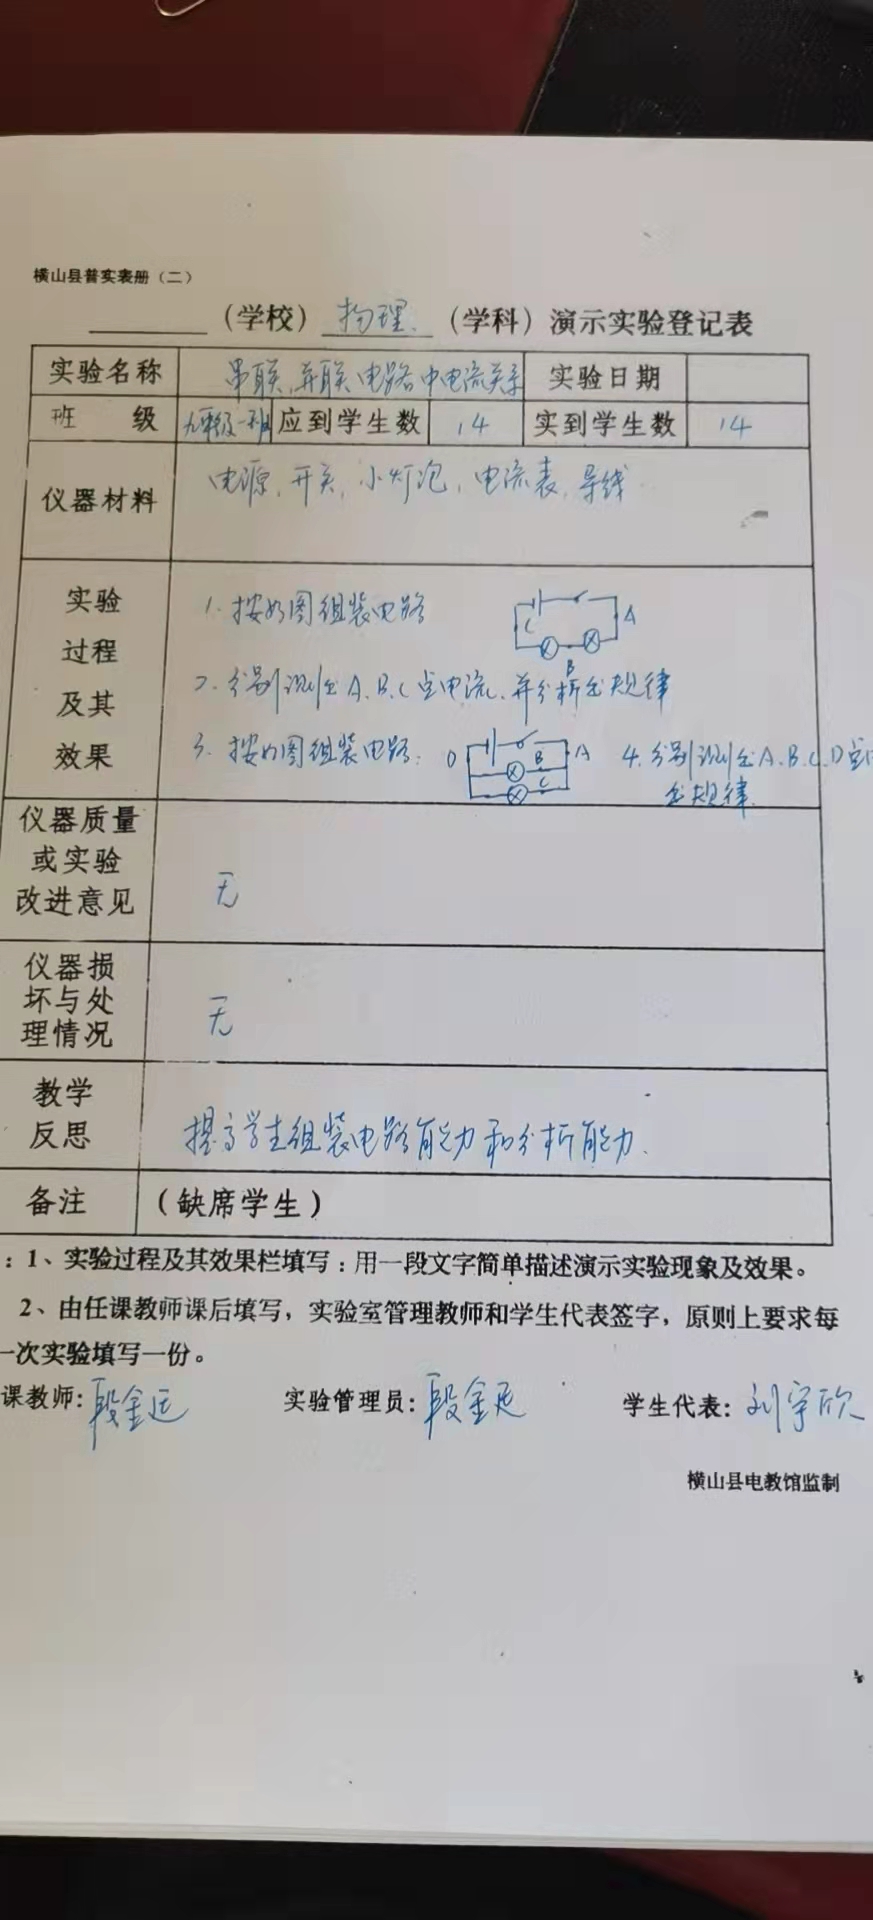 横山县普实表册（二）
（学校）物理（学科）演示实验登记表
实验名称 串联、并联电路中电流关系 实验日期
班 级 九年级一班 应到学生数 14 实到学生数 14
仪器材料 电源、开关、小灯泡、电流表、导线
实验过程及其效果
1. 按如图组装电路
C A
B
2. 分别测出A、B、C点电流、并分析出规律
3. 按如图组装电路：
D B A
C
4. 分别测出A.B.C.D点
出规律.
仪器质量
或实验
改进意见
无
仪器损
坏与处
理情况
无
教学
反思
提高学生组装电路能力和分析能力.
备注 （缺席学生）
：1、实验过程及其效果栏填写：用一段文字简单描述演示实验现象及效果。
2、由任课教师课后填写，实验室管理教师和学生代表签字，原则上要求每
一次实验填写一份。
课教师：段金廷 实验管理员：段金廷 学生代表：刘宇欣
横山县电教馆监制